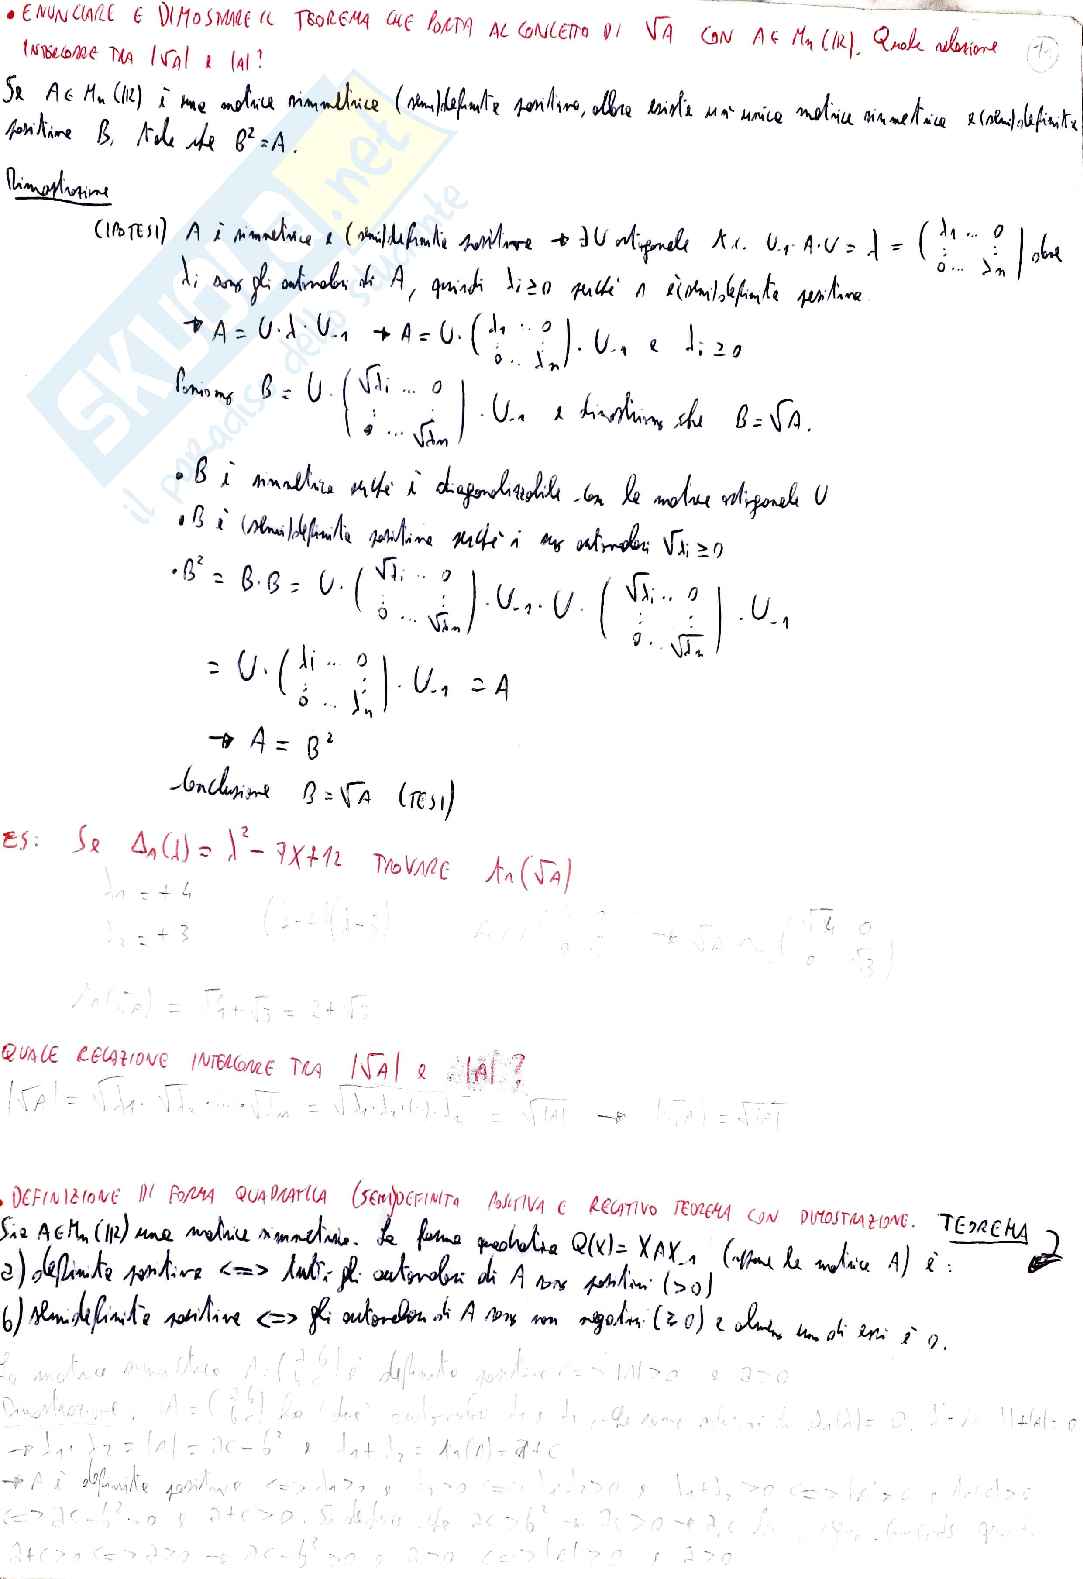 • ENUNCIARE E DIMOSTRARE IL TEOREMA CHE PORTA AL CONCETTO DI √A CON A∈Mn(IR). Quale relazione
INTERCORRE TRA |√A| e |A|?
11
Se A∈Mn(IR) è una matrice simmetrica (semi)definita positiva, allora esiste un'unica matrice simmetrica e (semi)definita
positiva B, tale che B²=A.
Dimostrazione
(IPOTESI) A è simmetrica e (semi)definita positiva → ∃U ortogonale t.c. U₋₁·A·U = λ = (λ1 ... 0 0... λn) dove
λi sono gli autovalori di A, quindi λi≥0 perché A è (semi)definita positiva
→ A = U·λ·U₋₁ → A = U·(λ1 ... 0 0... λn)·U₋₁ e λi≥0
Poniamo B = U·(√λi ... 0 0 ... √λn)·U₋₁ e dimostriamo che B=√A.
• B è simmetrica perché è diagonalizzabile con la matrice ortogonale U
• B è (semi)definita positiva perché i suoi autovalori √λi≥0
• B² = B·B = U·(√λi ... 0 0 ... √λn)·U₋₁·U·(√λi ... 0 0 ... √λn)·U₋₁
= U·(λi ... 0 0 ... λn)·U₋₁ = A
→ A = B²
Conclusione B=√A (TESI)
ES: Se Δn(λ) = λ²-7X+12 TROVARE tn(√A)
λ1 = +4
λ2 = +3
= √4+√3 = 2+√3
QUALE RELAZIONE INTERCORRE TRA |√A| e |A|?
|√A| = √λ1·√λ2·...·√λn = = √|A| → |√A| = √|A|
• DEFINIZIONE DI FORMA QUADRATICA (SEMI)DEFINITA POSITIVA E RELATIVO TEOREMA CON DIMOSTRAZIONE. TEOREMA
Sia A∈Mn(IR) una matrice simmetrica. La forma quadratica Q(X)=XAX₋₁ (oppure la matrice A) è:
a) definita positiva <=> tutti gli autovalori di A sono positivi (>0)
b) semidefinita positiva <=> gli autovalori di A sono non negativi (≥0) e almeno uno di essi è 0.
La matrice simmetrica definita positiva <=> |A|>0 e a>0
Dimostrazione.
→ λ1·λ2 = |A| = ac-b² e λ1+λ2 = tn(A) = a+c
→ A è definita positiva
SKUOLA.net
il paradiso dello studente